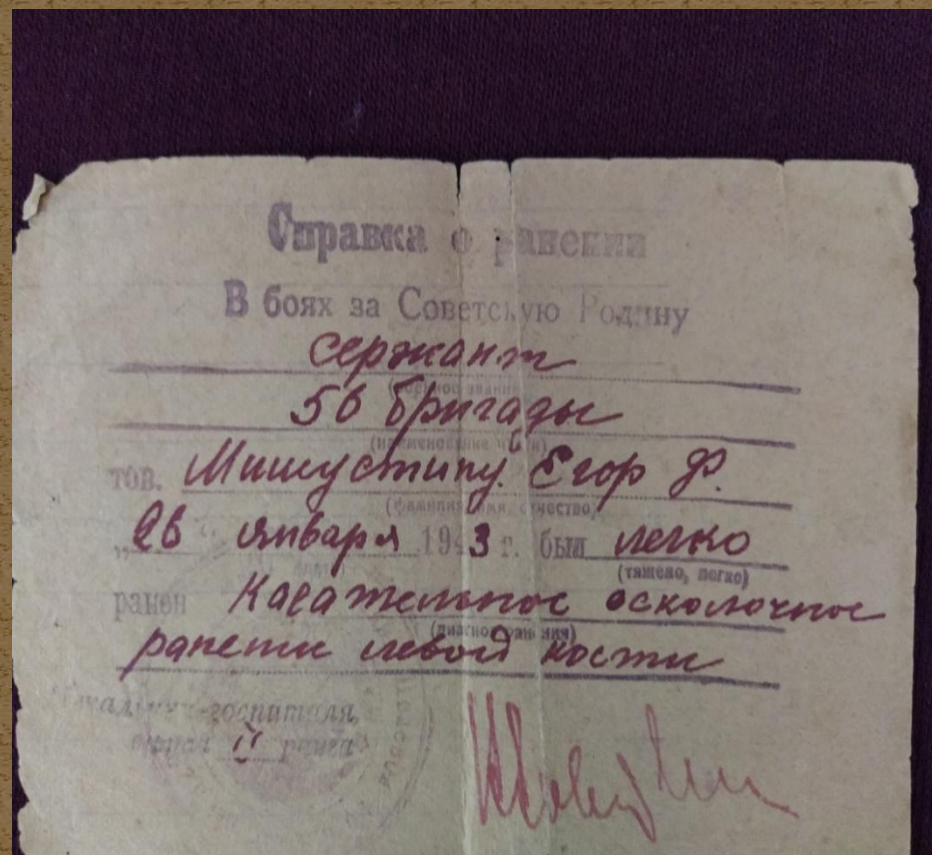 Справка о ранении
В боях за Советскую Родину
сержант
(военное звание)
56 бригады
(наименование части)
тов. Мишустину Егор Ф.
(фамилия, имя, отчество)
„26 января 1943 г. был легко
(тяжело, легко)
ранен Касательное осколочное
(диагноз ранения)
ранение левой кости
Начальник госпиталя,
II ранга